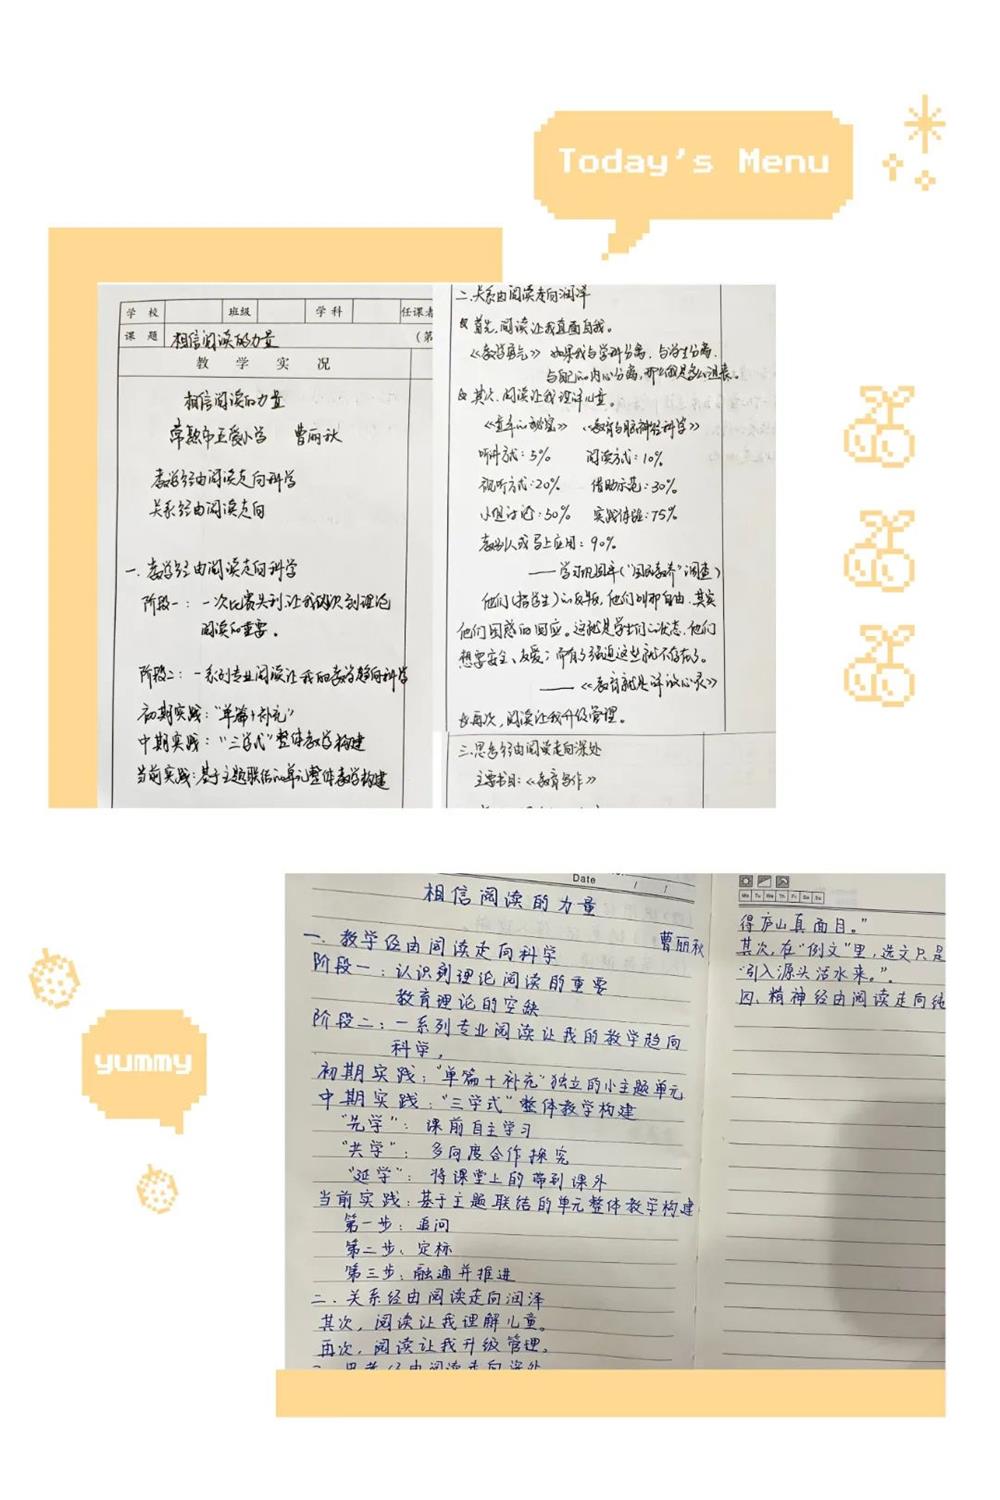 Today's Menu
学 校 班级 学科 任课者
课 题 相信阅读的力量 (第
教 学 实 况
相信阅读的力量
常熟市五爱小学 曹丽秋
教学经由阅读走向科学
关系经由阅读走向
一.教学经由阅读走向科学
阶段一：一次比赛失利,让我认识到理论
阅读的重要。
阶段二：一系列专业阅读让我的教学趋向科学
初期实践：“单篇+补充”
中期实践：“三学式”整体教学构建
当前实践:基于主题联结的单元整体教学构建
二.关系由阅读走向润泽
首先,阅读让我直面自我。
《教学勇气》 如果我与学科分离,与学生分离,
与自己的内心分离,
其次,阅读让我读评儿童。
《童年的秘密》 《教育与脑神经科学》
听讲方式：5% 阅读方式：10%
视听方式：20% 借助示范：30%
小组讨论：50% 实践体验：75%
教别人或马上应用：90%
他们(指学生)的反叛,他们的那自由,其实
他们困惑的回应。这就是学生们的状态,他们
想要安全、友爱；而有了强迫这些就不存在了。
再次,阅读让我升级管理。
三.思考经由阅读走向深处
主要书目：《教育写作》
Date / /
相信阅读的力量
曹丽秋
一.教学经由阅读走向科学
阶段一：认识到理论阅读的重要
教育理论的空缺
阶段二：一系列专业阅读让我的教学趋向
科学。
初期实践：“单篇+补充”独立的小主题单元
中期实践：“三学式”整体教学构建
“先学”：课前自主学习
“共学”：多向度合作探究
“延学”：将课堂上的带到课外
当前实践：基于主题联结的单元整体教学构建
第一步：追问
第二步：定标
第三步：融通并推进
二.关系经由阅读走向润泽
其次，阅读让我理解儿童。
再次，阅读让我升级管理。
Mo Tu We Th Fr Sa Su
得庐山真面目。”
其次,在“例文”里,选文只是
“引入源头活水来。”
四.精神经由阅读走向纯
yummy